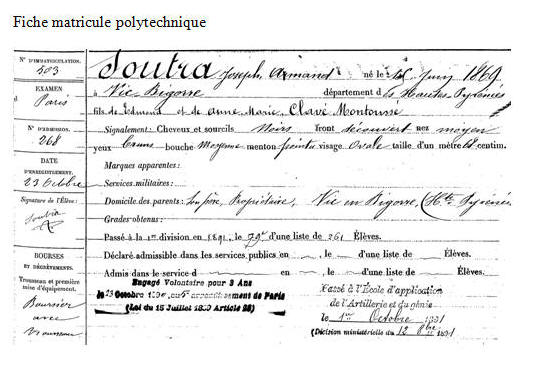 Fiche matricule polytechnique
N° D'IMMATRICULATION.
503
EXAMEN
Paris
N° D'ADMISSION.
268
DATE
D'ENREGISTREMENT.
23 Octobre
Signature de l'Élève:
Soutra
BOURSES
ET DÉGRÈVEMENTS.
Trousseau et première
mise d'équipement.
Boursier
avec
Trousseau
Soutra Joseph Armand né le Juin 1869
à Vic Bigorre département des Hautes-Pyrénées
fils de Edmond et de Anne Marie Clavé Montoussé
Signalement: Cheveux et sourcils Noirs front découvert nez moyen
yeux bruns bouche Moyenne menton pointu visage Ovale taille d'un mètre 68 centim.
Marques apparentes:
Services militaires:
Domicile des parents: Son père, Propriétaire, Vic en Bigorre, (Htes Pyrénées
Grades obtenus:
Passé à la 1re division en 1891, le 79e d'une liste de 261 Élèves.
Déclaré admissible dans les services publics en , le d'une liste de Élèves.
Admis dans le service d en , le d'une liste de Élèves.
Engagé Volontaire pour 3 Ans
le 23 Octobre arrondissement de Paris
(Loi du 15 Juillet 1889 Article 28)
Passé à l'École d'application
de l'Artillerie et du génie
le 1er Octobre 1891
(Décision ministérielle du 12 8bre 1891